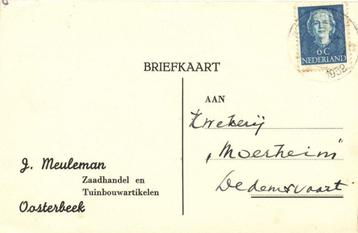 6C
NEDERLAND
1952
BRIEFKAART
AAN
Kwekerij
"Moerheim"
Dedemsvaart.
J. Meuleman
Zaadhandel en
Tuinbouwartikelen
Oosterbeek